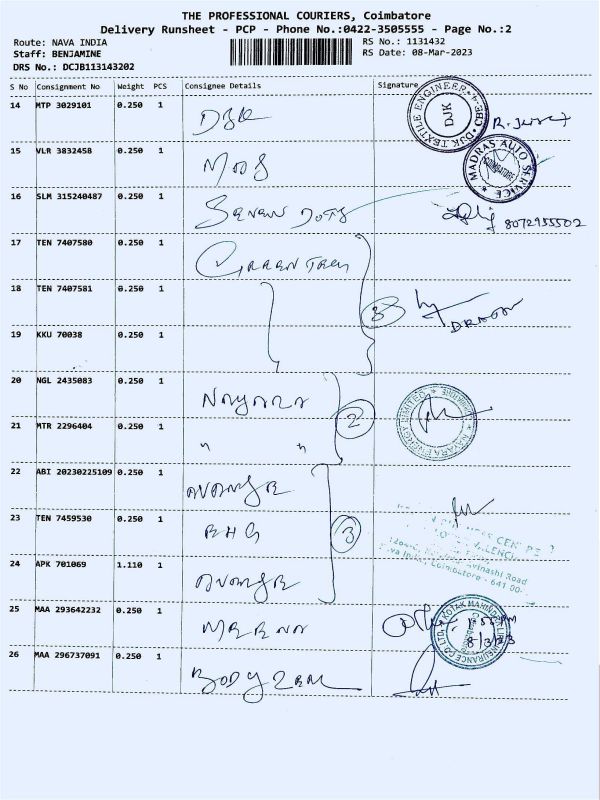 THE PROFESSIONAL COURIERS, Coimbatore
Delivery Runsheet - PCP - Phone No.:0422-3505555 - Page No.:2
Route: NAVA INDIA RS No.: 1131432
Staff: BENJAMINE RS Date: 08-Mar-2023
DRS No.: DCJB113143202
S No Consignment No Weight PCS Consignee Details Signature
14 MTP 3029101 0.250 1 DJK
DJK TEXTILE ENGINEER CBE-4
DJK
15 VLR 3832458 0.250 1
MADRAS AUTO SERVICE
COIMBATORE
16 SLM 315240487 0.250 1 SEVEN DOTS 8072955502
17 TEN 7407580 0.250 1 GREEN TREN
18 TEN 7407581 0.250 1 3
19 KKU 70038 0.250 1
20 NGL 2435083 0.250 1 NAYARA
21 MTR 2296404 0.250 1 " " 2
NAYARA ENERGY LIMITED
22 ABI 20230225109 0.250 1
23 TEN 7459530 0.250 1 3
24 APK 701069 1.110 1
Avinashi Road
Coimbatore - 641 00
25 MAA 293642232 0.250 1
KOTAK MAHINDRA LIFE INSURANCE CO. LTD.
8/3/23
26 MAA 296737091 0.250 1 BODY ZEAL